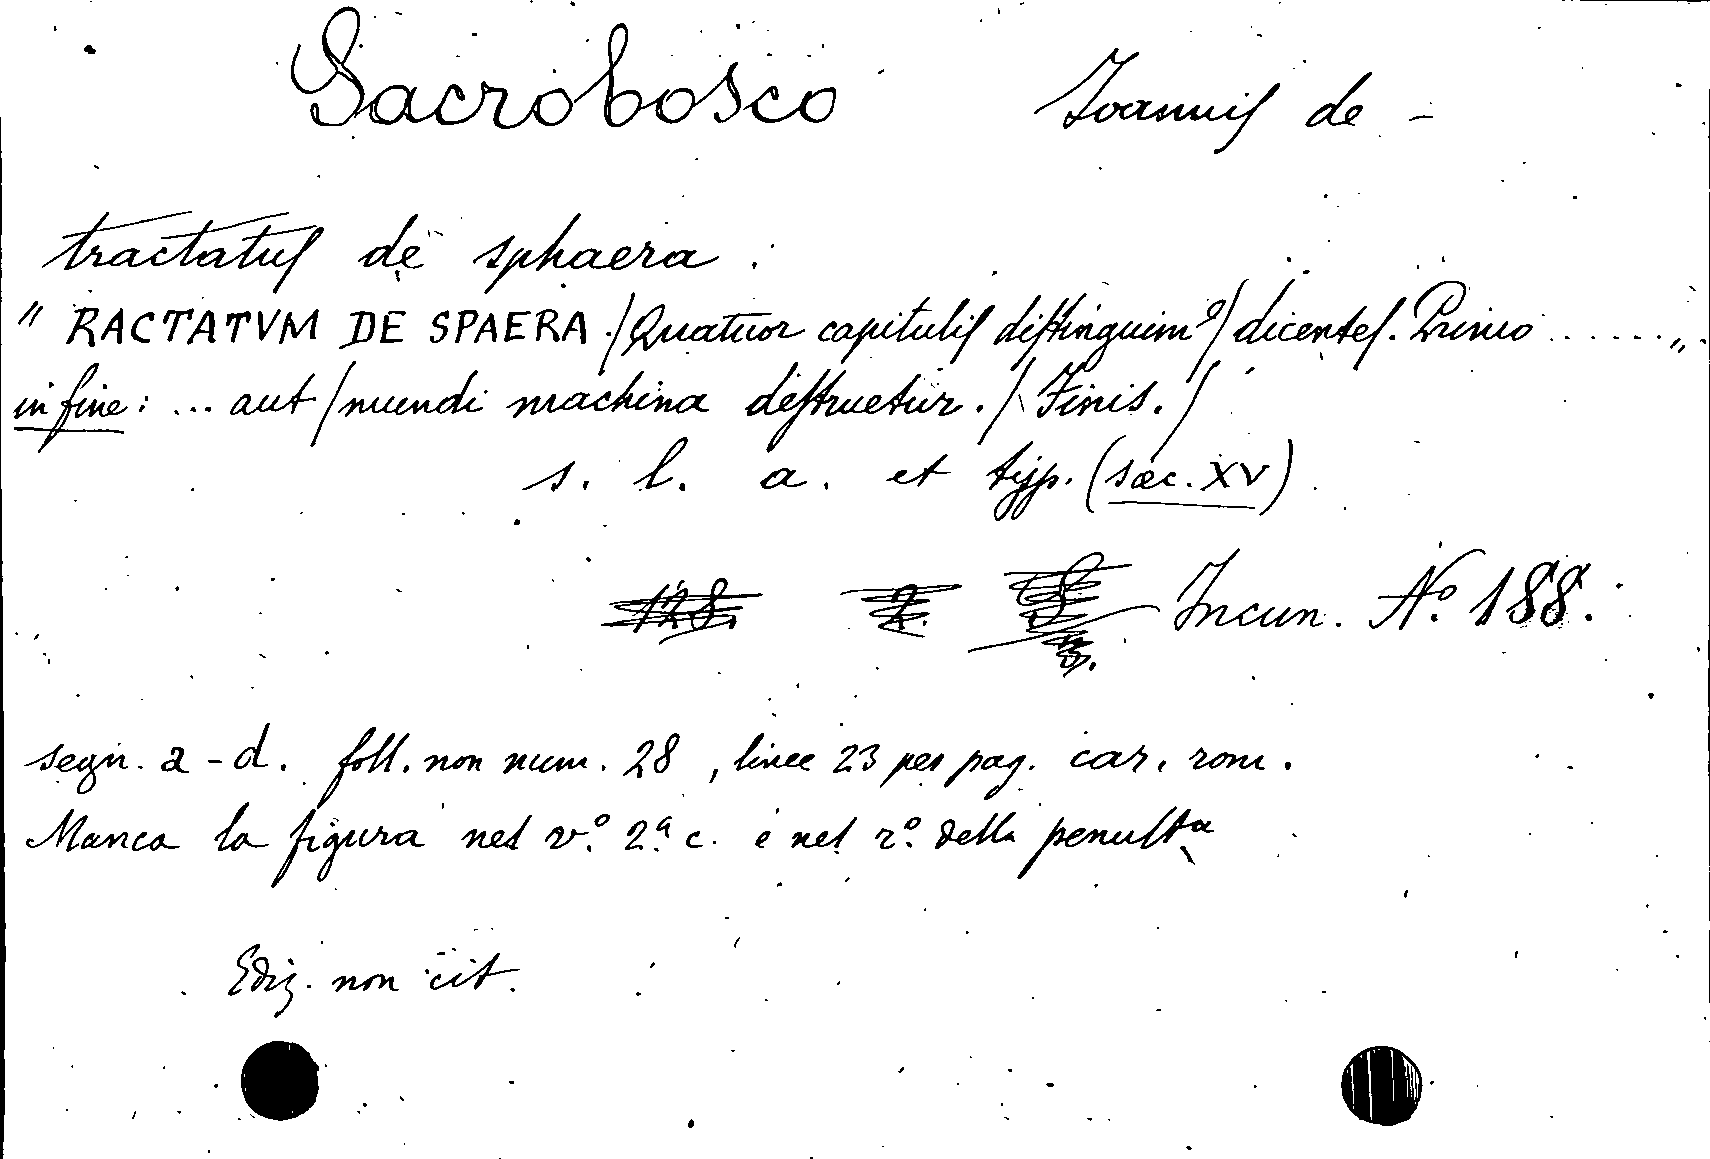 Sacrobosco Ioannis de -
tractatus de sphaera.
" RACTATVM DE SPAERA ./Quatuor capitulis distinguimº/dicentes. Primo ......„.
in fine: ... aut/mundi machina destruetur./Finis./
s. l. a. et typ. (sæc. XV)
128. 2. Incun. Nº 188.
segn. a-d. foll. non num. 28, linee 23 per pag. car. rom.
Manca la figura nel vº. 2ª c. e nel rº. della penultª
Ediz. non cit.